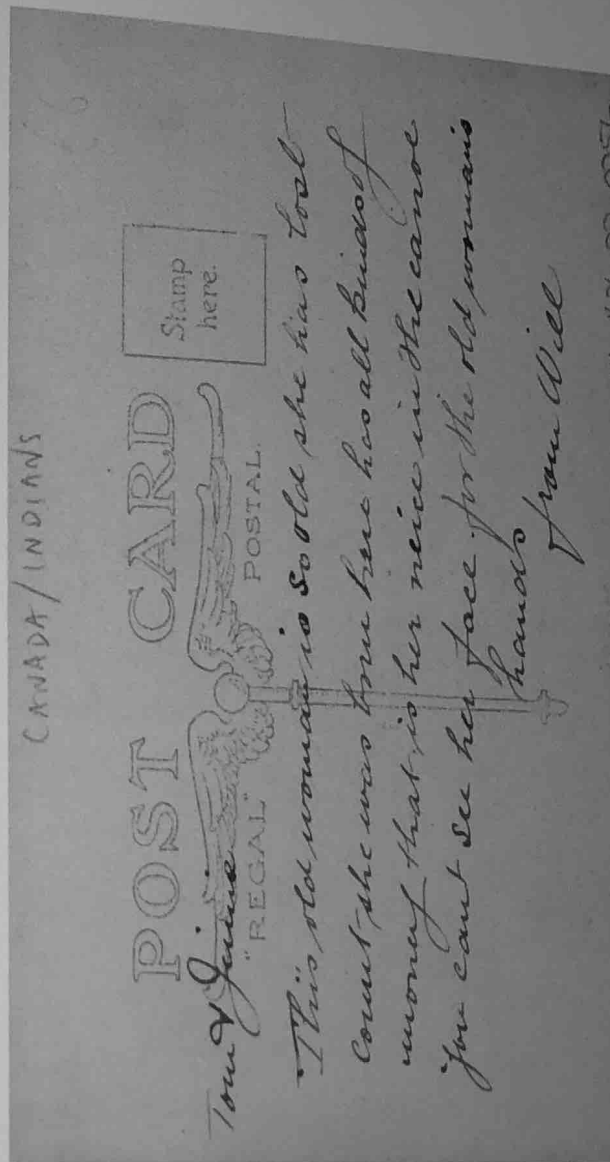 CANADA/INDIANS
POST CARD
"REGAL" POSTAL.
Stamp
here.
Tom &
This old woman is so old she has lost
count she was born here has all kinds of
money that is her neice in the canoe
you cant see her face for the old womans
hands
from Will